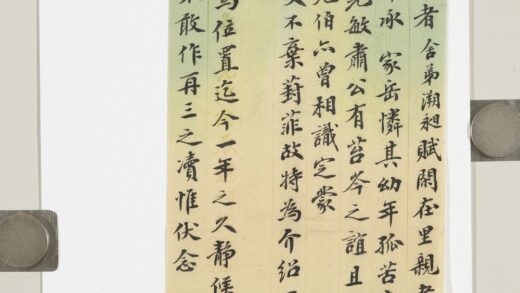 者 舍弟溯昶賦閑在里親老
承 家岳憐其幼年孤苦
先敏肅公有苔岑之誼且
伯亦曾相識定蒙
不棄葑菲故特為介紹
為位置迄今一年之久靜候
敢作再三之瀆惟伏念